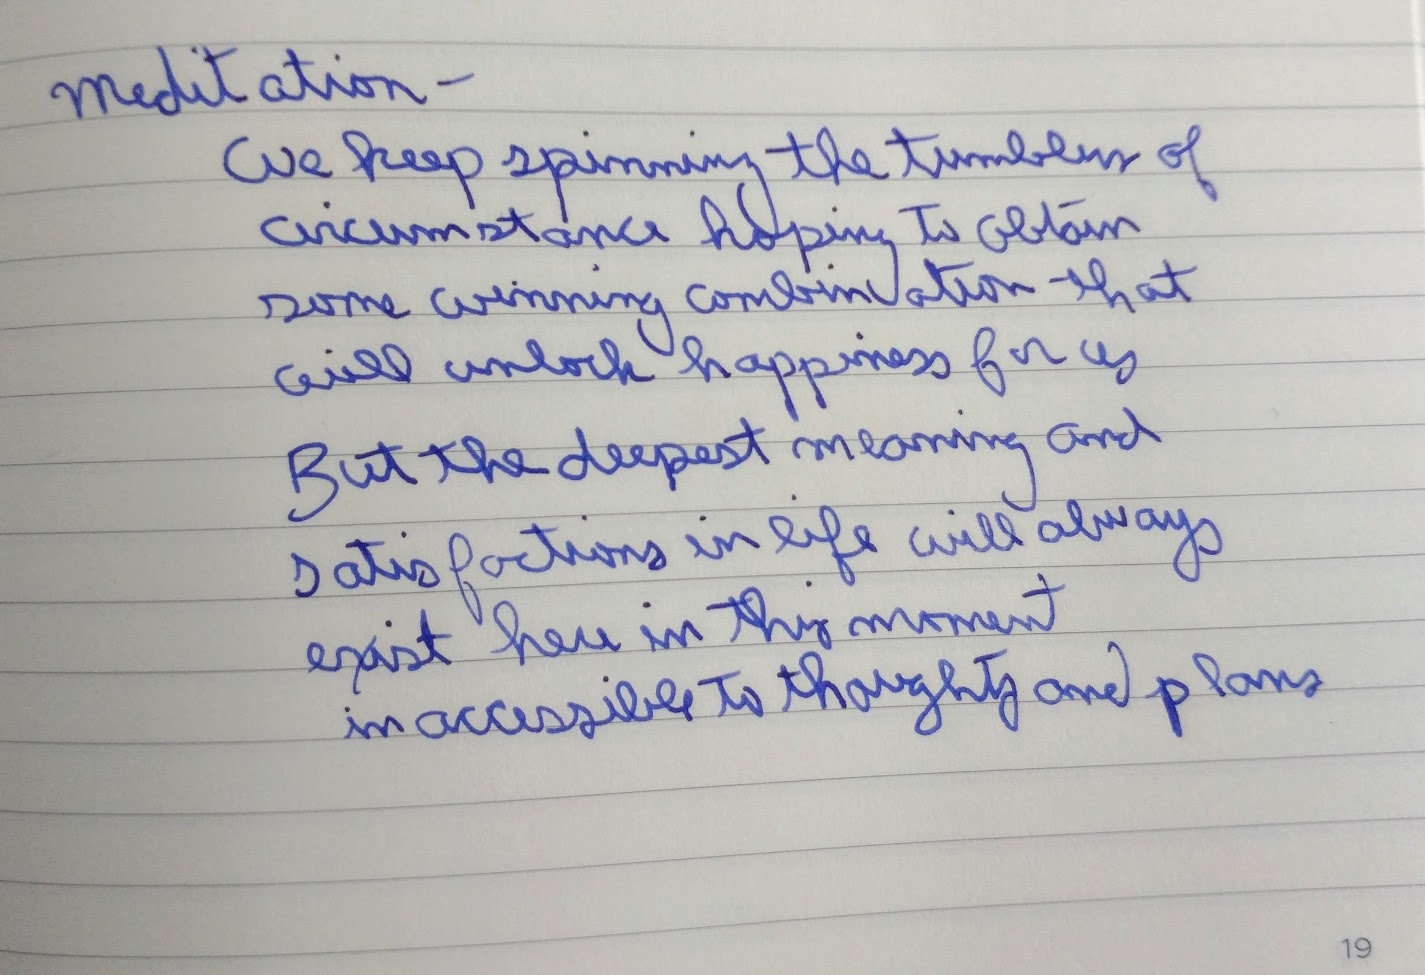 Meditation -
We keep spinning the tumblers of
circumstance hoping to obtain
some winning combination that
will unlock happiness for us
But the deepest meaning and
satisfactions in life will always
exist here in this moment
inaccessible to thoughts and plans
19